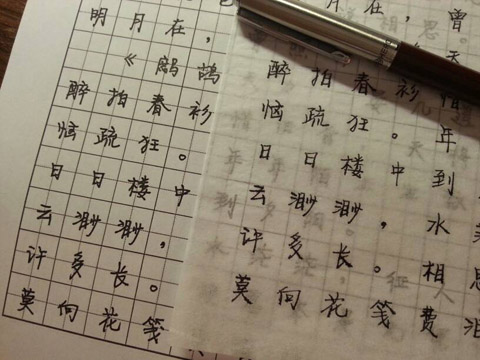 明月在,
《鹧鸪
醉拍春衫
恼疏狂。
日日楼中
云渺渺,
许多长。
莫向花笺
月在,曾
天
醉拍春衫惜
恼疏狂。年
日日楼中到
云渺渺,水
许多长。相思
莫向花笺费泪